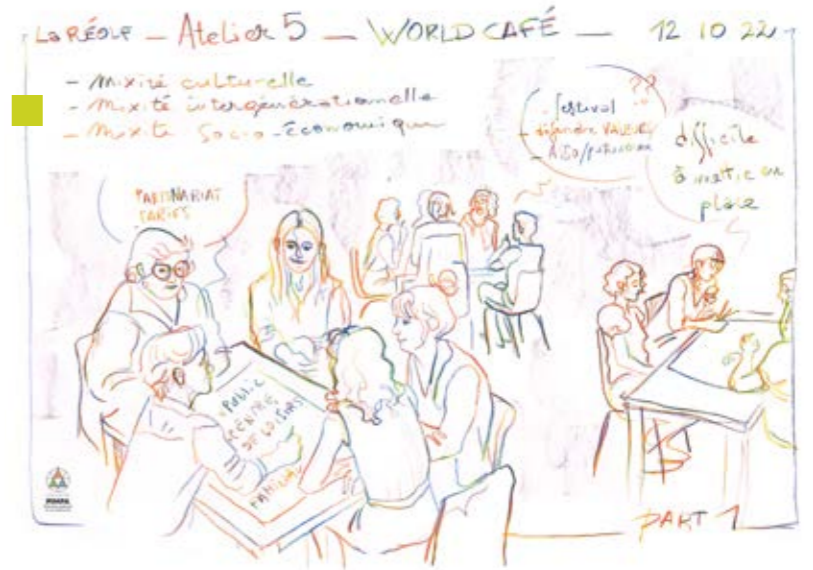 La RÉOLE — Atelier 5 — WORLD CAFÉ — 12 10 22
- Mixité culturelle
- Mixité intergénérationnelle
- Mixité Socio-Économique
??
festival
- défendre VALEURS
difficile
à mettre en
place
PARTENARIAT
TARIFS
Public
CENTRE
DE LOISIRS
FAMILIAL
PART 1